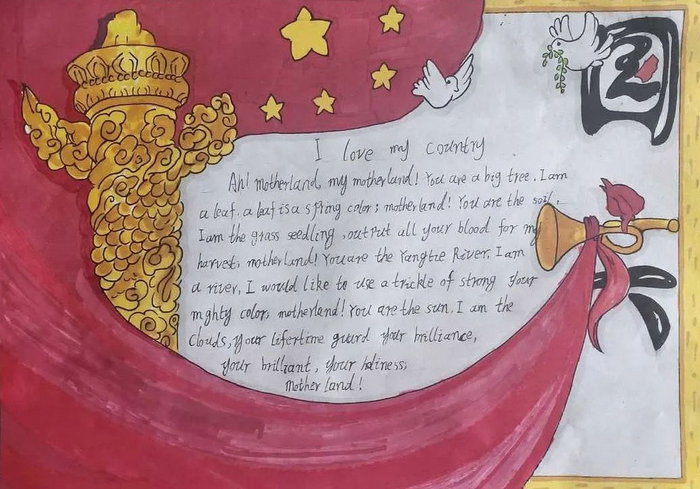 I love my country
Ah! motherland, my motherland! You are a big tree. I am
a leaf. a leaf is a spring color; motherland! You are the soil.
I am the grass seedling, output all your blood for my
harvest, motherland! You are the Yangtie River. I am
a river, I would like to use a trickle of strong your
mghty color, motherland! You are the sun. I am the
Clouds, your lifertime guard your brilliance,
your brilliant, your holiness,
Motherland!
国
六